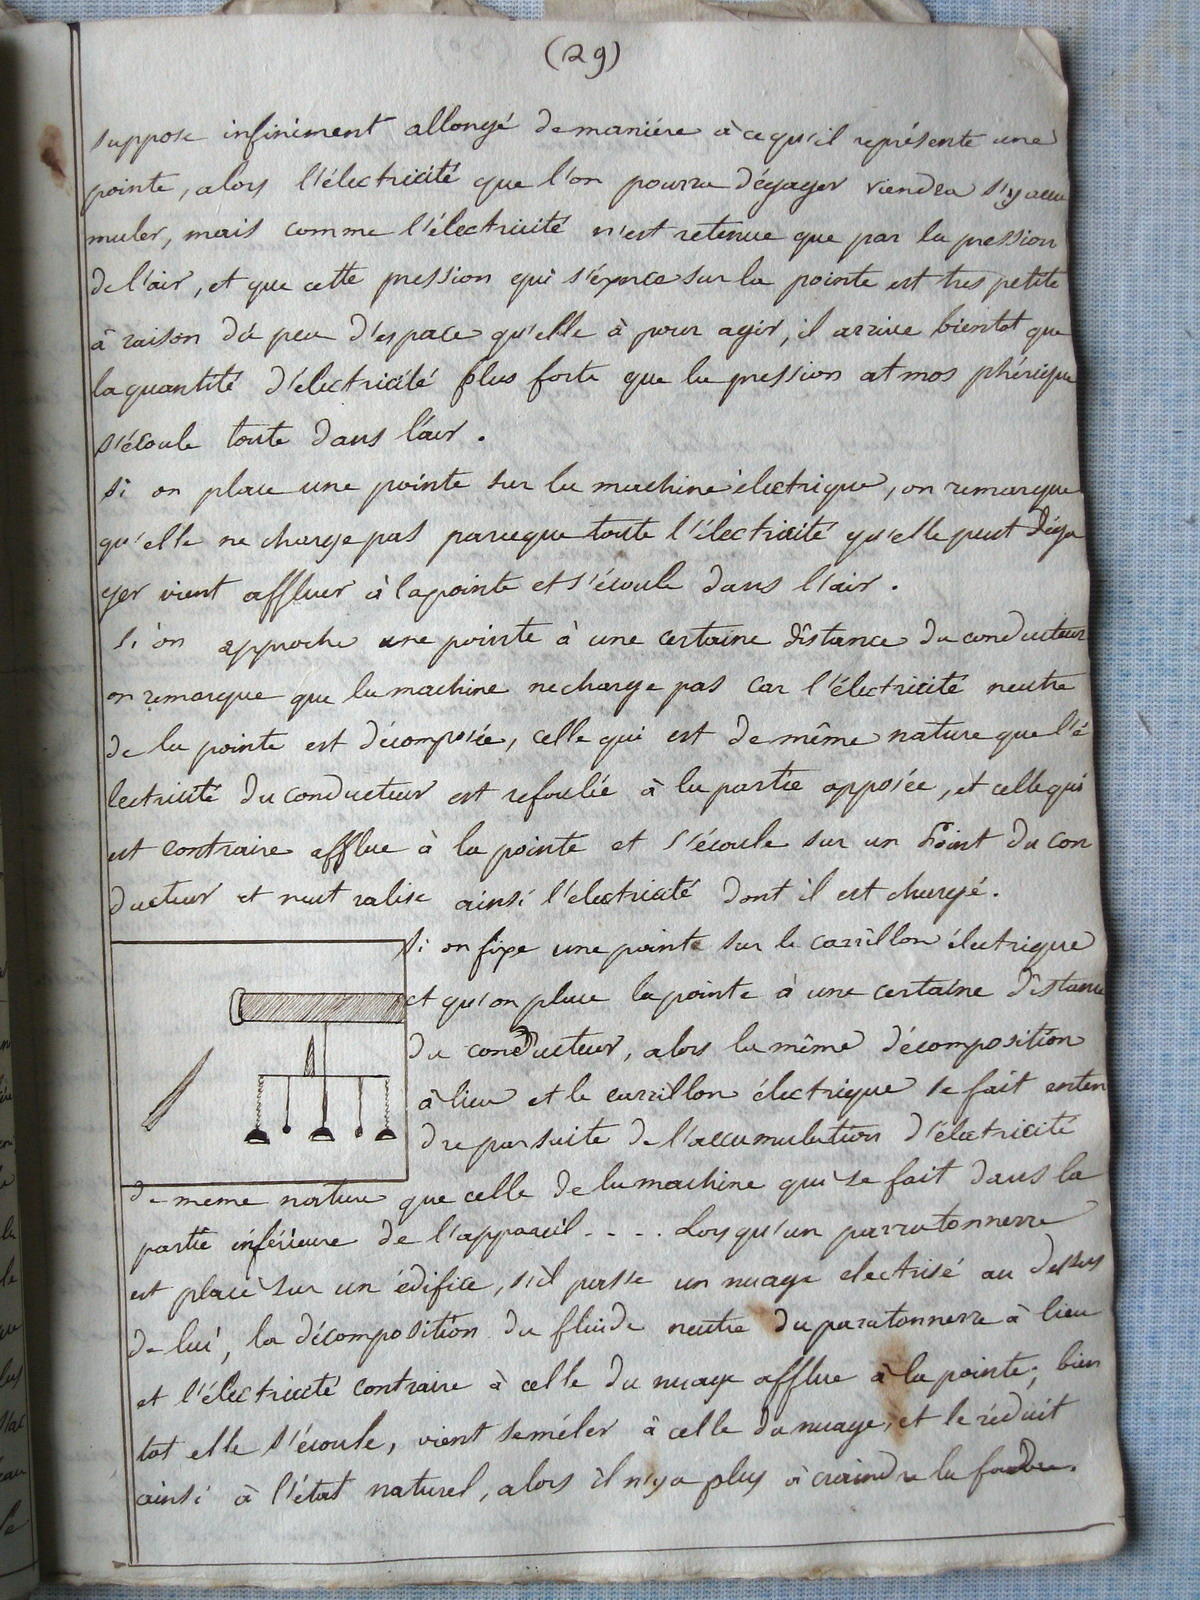 (29)
suppose infiniment allongé demanière à cequ'il représente une
pointe, alors l'électricité que l'on pourra dégager viendra s'y accu
muler, mais comme l'électricité n'est retenue que par la pression
de l'air, et que cette pression qui s'éxerce sur la pointe est tres petite
à raison du peu d'espace qu'elle à pour agir, il arrive bientot que
la quantité d'électricité plus forte que la pression atmosphérique
s'écoule toute dans l'air.
Si on place une pointe sur la machine électrique, on remarque
qu'elle ne charge pas parceque toute l'électricité qu'elle peut déga
ger vient affluer à la pointe et s'écoule dans l'air.
Si on approche une pointe à une certaine distance du conducteur
on remarque que la machine ne charge pas car l'électricité neutre
de la pointe est décomposée, celle qui est de même nature que l'é
lectricité du conducteur est refoulée à la partie opposée, et celle qui
est contraire afflue à la pointe et s'écoule sur un point du con
ducteur et neutralise ainsi l'electricité dont il est chargé.
Si on fixe une pointe sur le carillon électrique
et qu'on place la pointe à une certaine distance
du conducteur, alors la même décomposition
à lieu et le carrillon électrique se fait enten
dre par suite de l'accumulation d'électricité
de meme nature que celle de la machine qui se fait dans la
partie inférieure de l'appareil - - . . Lorsqu'un parratonnerre
est placé sur un édifice, s'il passe un nuage electrisé au dessus
de lui, la décomposition du fluide neutre du paratonnerre à lieu
et l'électricité contraire à celle du nuage afflue à la pointe; bien
tot elle s'écoule, vient se mêler à celle du nuage, et le réduit
ainsi à l'état naturel, alors il n'y a plus à craindre la foudre.